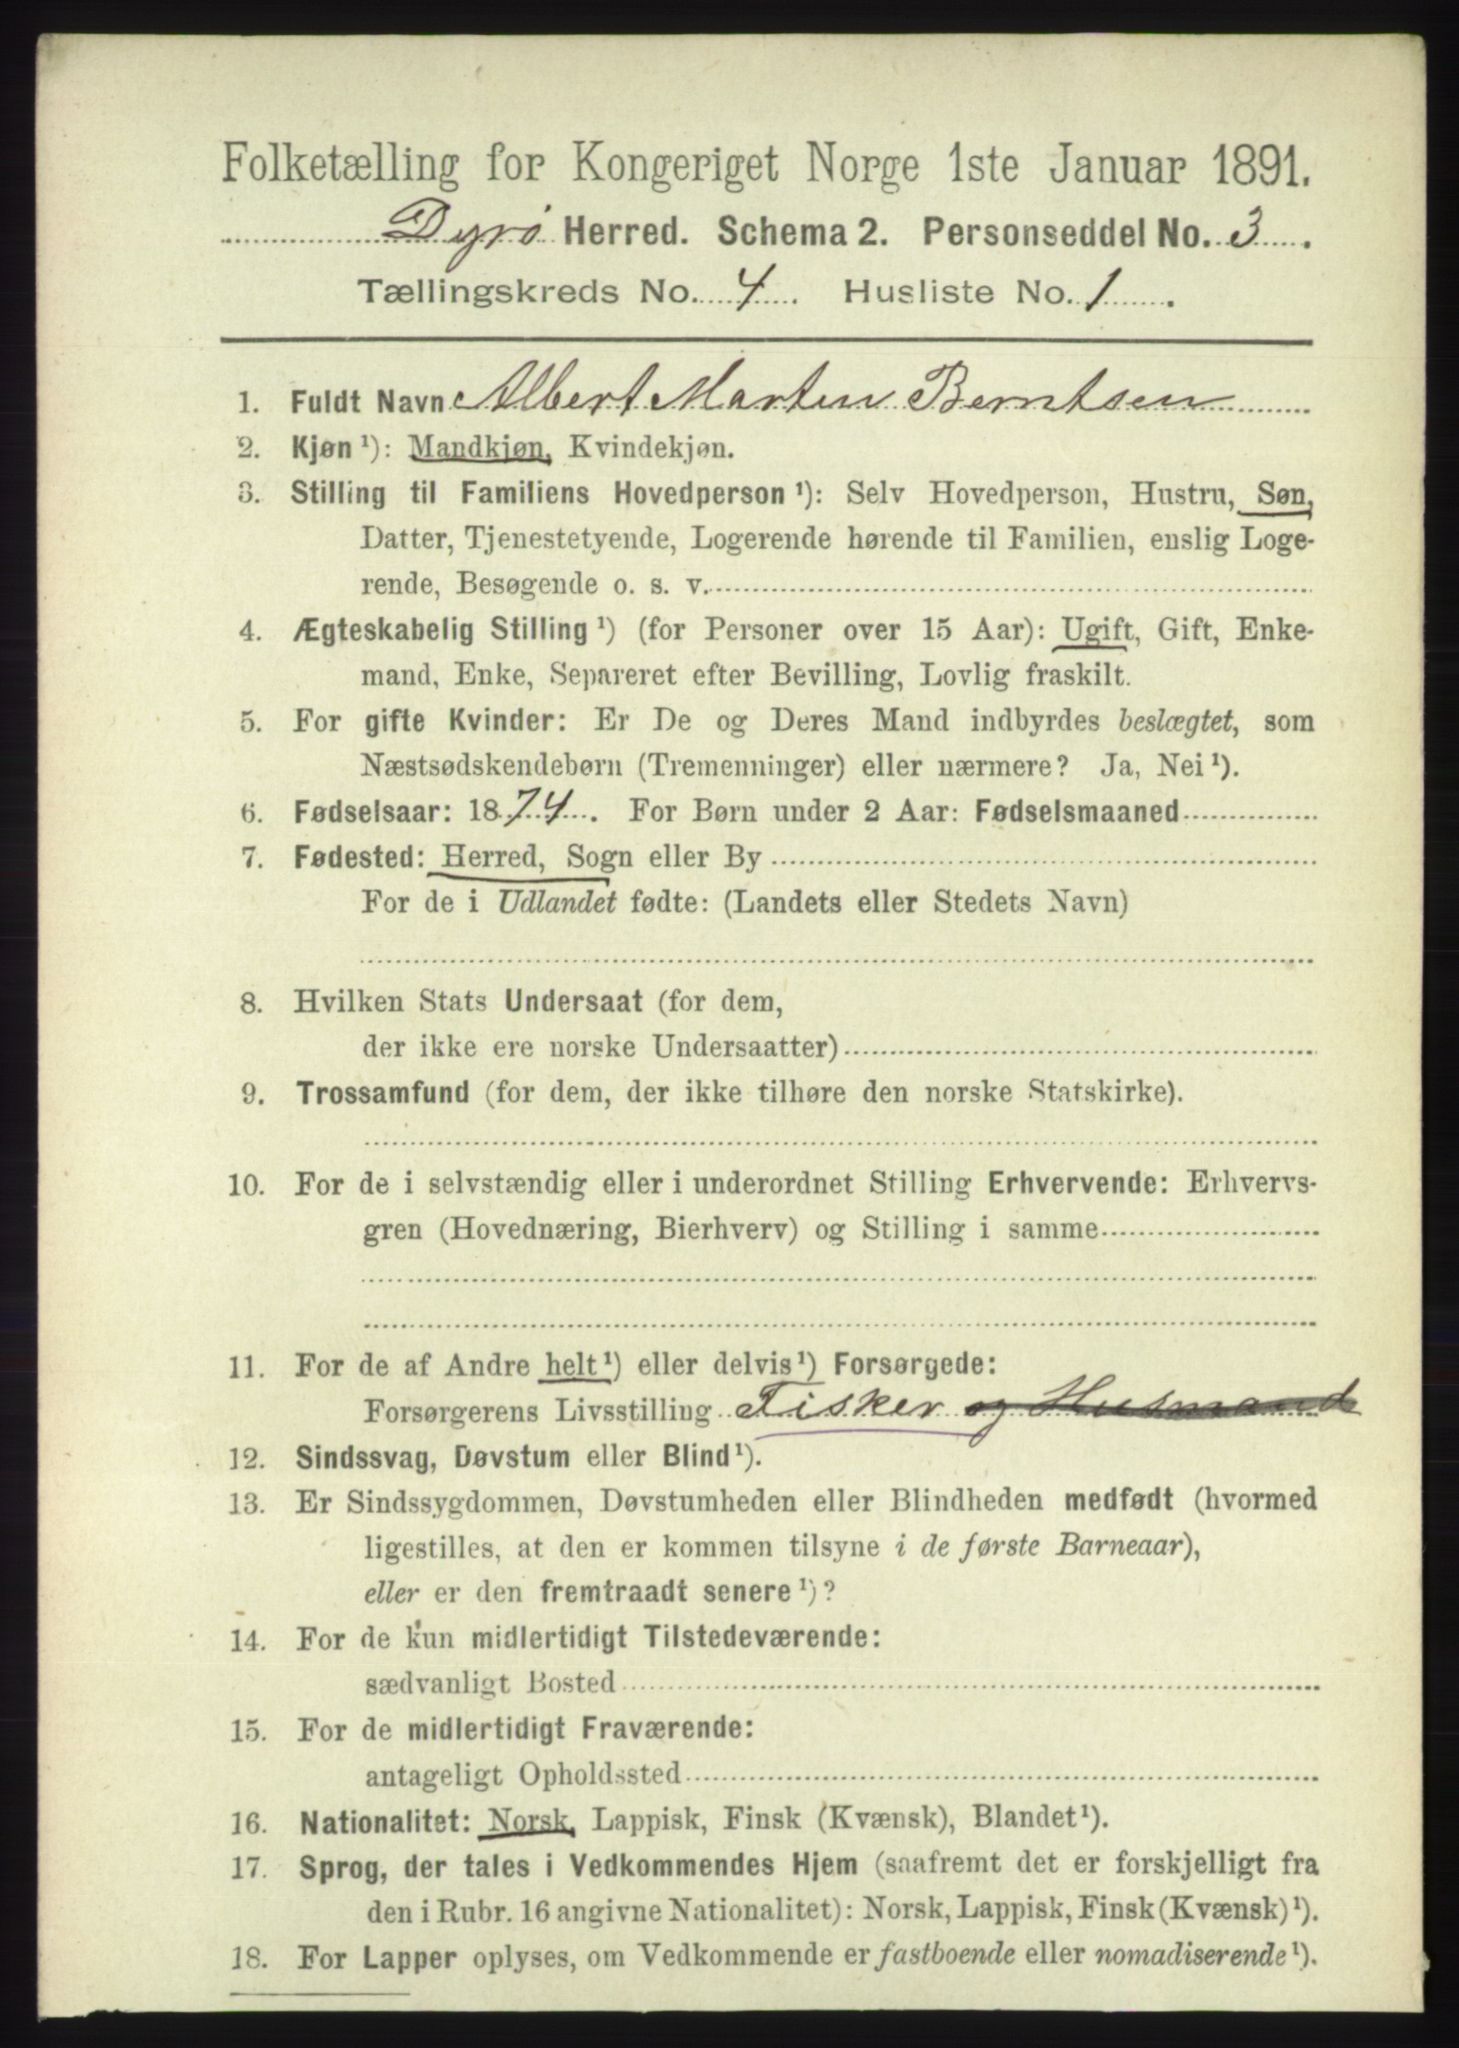 Folketælling for Kongeriget Norge 1ste Januar 1891.
Dyrø Herred. Schema 2. Personseddel No. 3.
Tællingskreds No. 4. Husliste No. 1.
1. Fuldt Navn Albert Martin Berntsen
2. Kjøn ¹): Mandkjøn, Kvindekjøn.
3. Stilling til Familiens Hovedperson ¹): Selv Hovedperson, Hustru, Søn,
Datter, Tjenestetyende, Logerende hørende til Familien, enslig Loge-
rende, Besøgende o. s. v.
4. Ægteskabelig Stilling ¹) (for Personer over 15 Aar): Ugift, Gift, Enke-
mand, Enke, Separeret efter Bevilling, Lovlig fraskilt.
5. For gifte Kvinder: Er De og Deres Mand indbyrdes beslægtet, som
Næstsødskendebørn (Tremenninger) eller nærmere? Ja, Nei ¹).
6. Fødselsaar: 1874. For Børn under 2 Aar: Fødselsmaaned
7. Fødested: Herred, Sogn eller By
For de i Udlandet fødte: (Landets eller Stedets Navn)
8. Hvilken Stats Undersaat (for dem,
der ikke ere norske Undersaatter)
9. Trossamfund (for dem, der ikke tilhøre den norske Statskirke).
10. For de i selvstændig eller i underordnet Stilling Erhvervende: Erhvervs-
gren (Hovednæring, Bierhverv) og Stilling i samme
11. For de af Andre helt ¹) eller delvis ¹) Forsørgede:
Forsørgerens Livsstilling Fisker og Husmand
12. Sindssvag, Døvstum eller Blind ¹).
13. Er Sindssygdommen, Døvstumheden eller Blindheden medfødt (hvormed
ligestilles, at den er kommen tilsyne i de første Barneaar),
eller er den fremtraadt senere ¹)?
14. For de kun midlertidigt Tilstedeværende:
sædvanligt Bosted
15. For de midlertidigt Fraværende:
antageligt Opholdssted
16. Nationalitet: Norsk, Lappisk, Finsk (Kvænsk), Blandet ¹).
17. Sprog, der tales i Vedkommendes Hjem (saafremt det er forskjelligt fra
den i Rubr. 16 angivne Nationalitet): Norsk, Lappisk, Finsk (Kvænsk) ¹).
18. For Lapper oplyses, om Vedkommende er fastboende eller nomadiserende ¹).